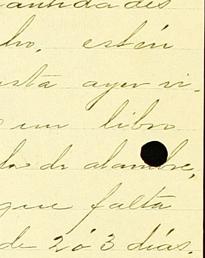 antidades
ho, estén
sta ayer vi-
un libro
de alambre,
que falta
de 2 ó 3 días.